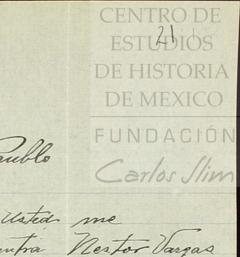 CENTRO DE
ESTUDIOS
DE HISTORIA
DE MEXICO
21
FUNDACIÓN
Carlos Slim
Usted me
Nestor Vargas